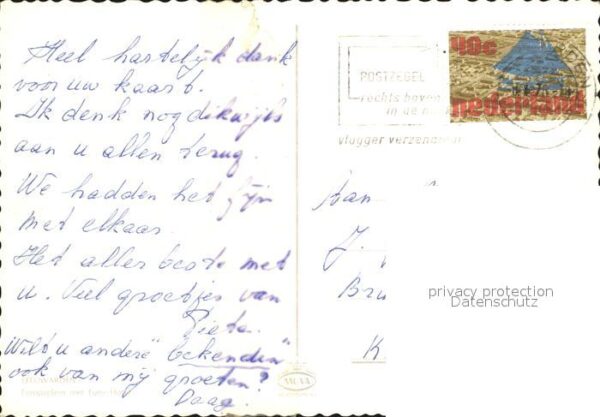 Heel hartelijk dank
voor uw kaart.
Ik denk nog dikwijls
aan u allen terug.
We hadden het fijn
met elkaar.
Het aller beste met
u. Veel groetjes van
Pieta.
Wilt u andere "bekenden"
ook van mij groeten?
Daag.
LEEUWARDEN
MUVA
40c
nederland
POSTZEGEL
rechts boven
in de
vlugger verzenden
Aan
J.
Bru
K
privacy protection
Datenschutz